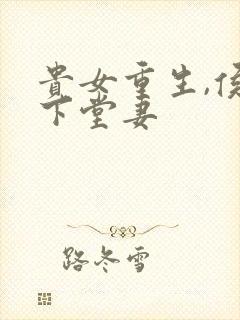 貴女重生,侯
下堂妻
路冬雪